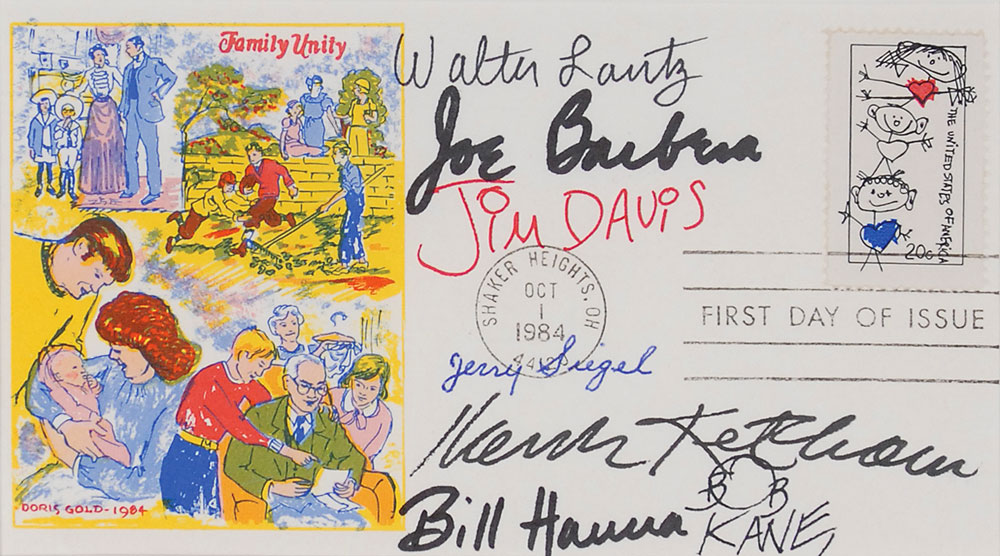 Family Unity
DORIS GOLD-1984
Walter Lantz
Joe Barbera
JIM DAVIS
SHAKER HEIGHTS, OH
OCT
1
1984
Jerry Siegel
Hank Ketcham
Bill Hanna
BOB
KANE
THE UNITED STATES OF AMERICA
20c
FIRST DAY OF ISSUE